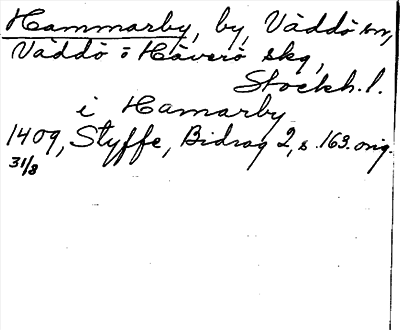 Hammarby, by, Väddö sn,
Väddö o Häverö skg,
Stockh. l.
i Hamarby
1409, Styffe, Bidrag 2, s. 163. orig.
31/8